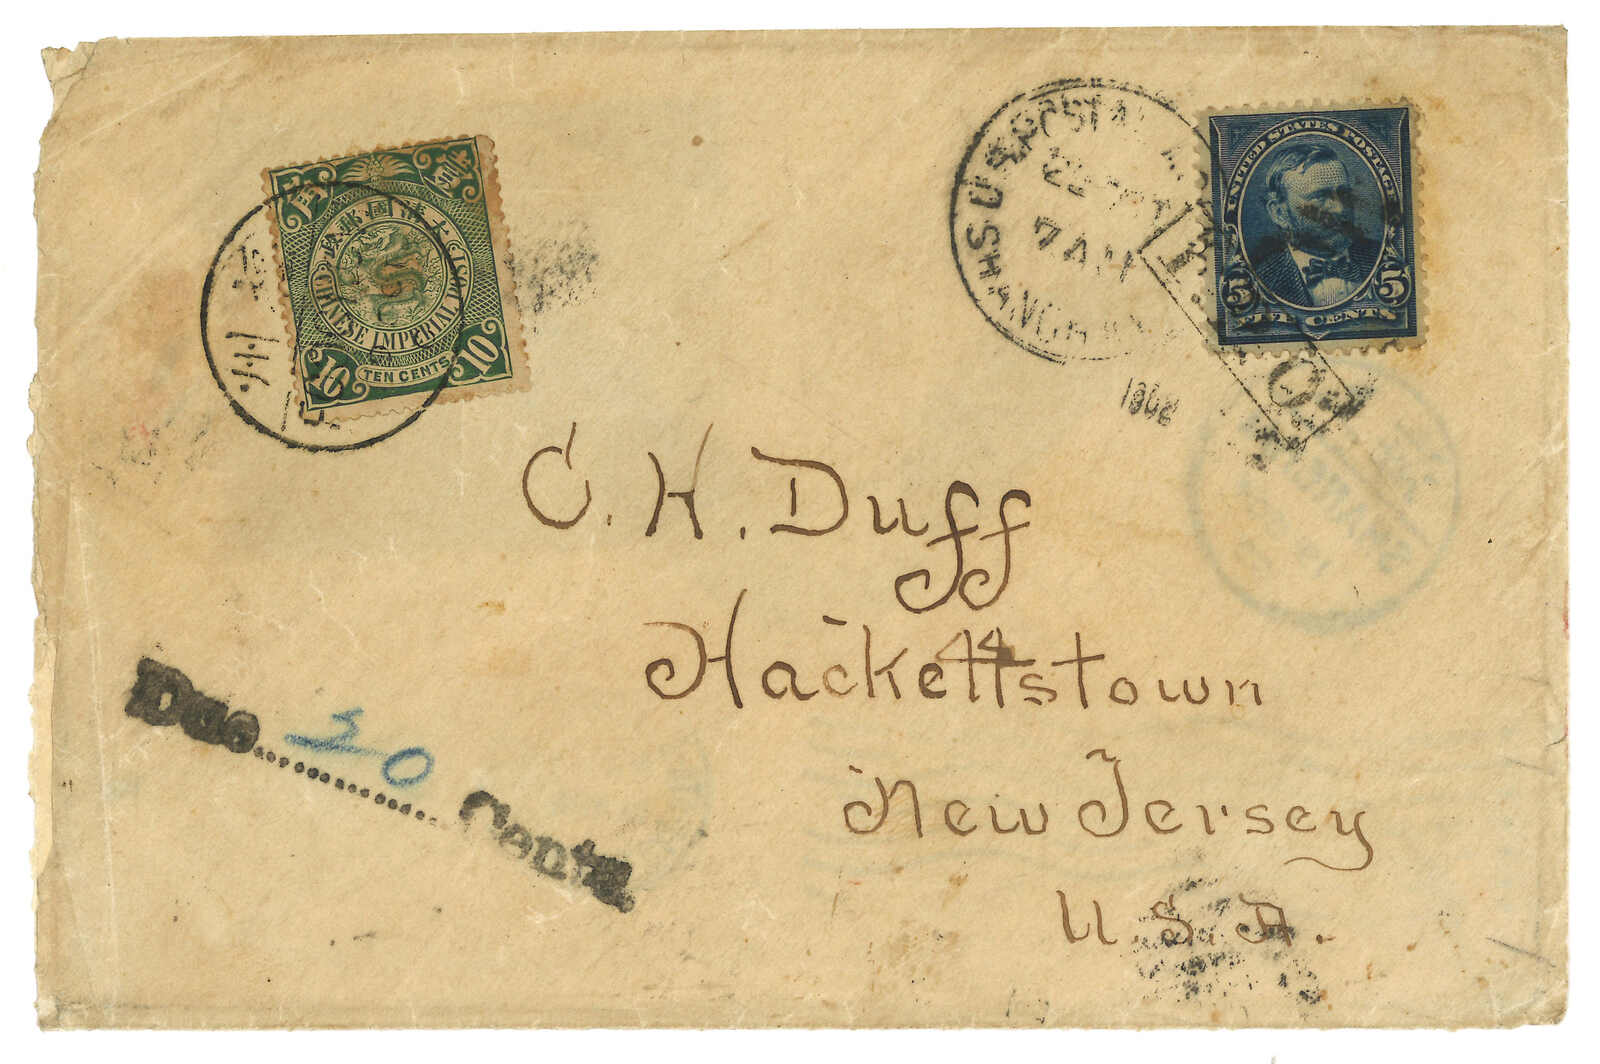 大清國郵政
CHINESE IMPERIAL POST
10 10
TEN CENTS
U.S. POSTAL
7 AM
SHANGHAI
1902
UNITED STATES POSTAGE
5 5
FIVE CENTS
C. H. Duff
Hackettstown
New Jersey
U.S.A.
Due 30 Cents.